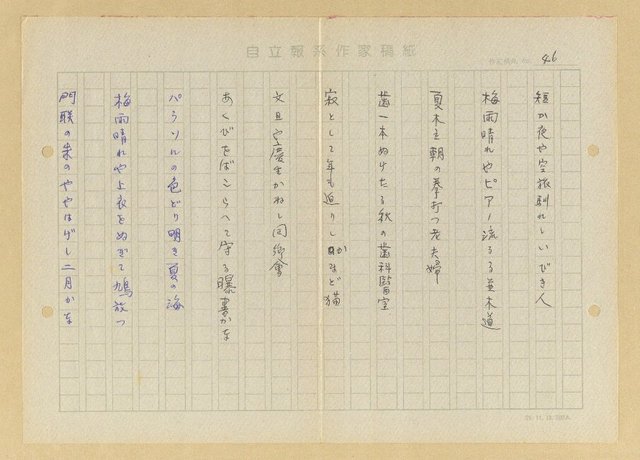 自立報系作家稿紙
46
短か夜や空旅馴れしいびき人
梅雨晴れやピアノ流るる並木道
夏木立朝の拳打つ老夫婦
歯一本ぬけたる秋の歯科醫室
寂として年も迫りしかまど猫
文旦や慶生かねし同郷會
あくびをばこらへて守る曝書かな
パラソルの色どり明き夏の海
梅雨晴れや上衣をぬぎて鳩放つ
門聯の朱のややはげし二月かな